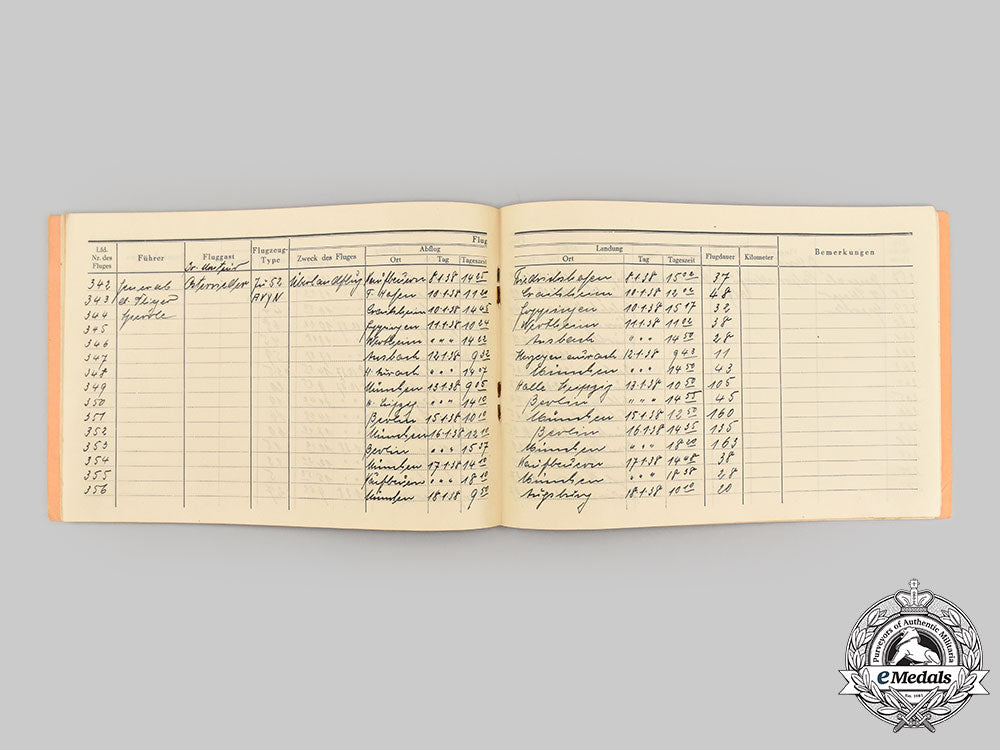 Flug
Lfd. Nr. des Fluges Führer Fluggast Flugzeug-Type Zweck des Fluges Abflug Ort Tag Tageszeit Landung Ort Tag Tageszeit Flugdauer Kilometer Bemerkungen
342 General Ostermeier Ju 52 Überlandflug Kaufbeuren 8.1.38 14 25 Friedrichshafen 8.1.38 15 02 37
343 d. Flieger AVYN F. Hafen 10.1.38 11 20 Crailsheim 10.1.38 12 48
344 Sperrle Crailsheim 10.1.38 14 45 Göppingen 10.1.38 15 17 32
345 Göppingen 11.1.38 10 24 Wertheim 11.1.38 11 02 38
346 Wertheim " " " 14 22 Ansbach " " " 14 50 28
347 Ansbach 12.1.38 9 32 Herzogenaurach 12.1.38 9 43 11
348 H. Aurach " " " 14 07 München " " " 14 50 43
349 München 13.1.38 9 05 Halle Leipzig 13.1.38 10 50 105
350 H. Leipzig " " " 14 10 Berlin " " " 14 55 45
351 Berlin 15.1.38 10 10 München 15.1.38 12 50 160
352 München 16.1.38 12 Berlin 16.1.38 14 35 135
353 Berlin " " " 15 37 München " " " 18 163
354 München 17.1.38 14 10 Kaufbeuren 17.1.38 14 48 38
355 Kaufbeuren " " " 18 10 München " " " 18 38 28
356 München 18.1.38 9 50 Augsburg 18.1.38 10 10 20
Purveyors of Authentic Militaria
eMedals
Est. 1985